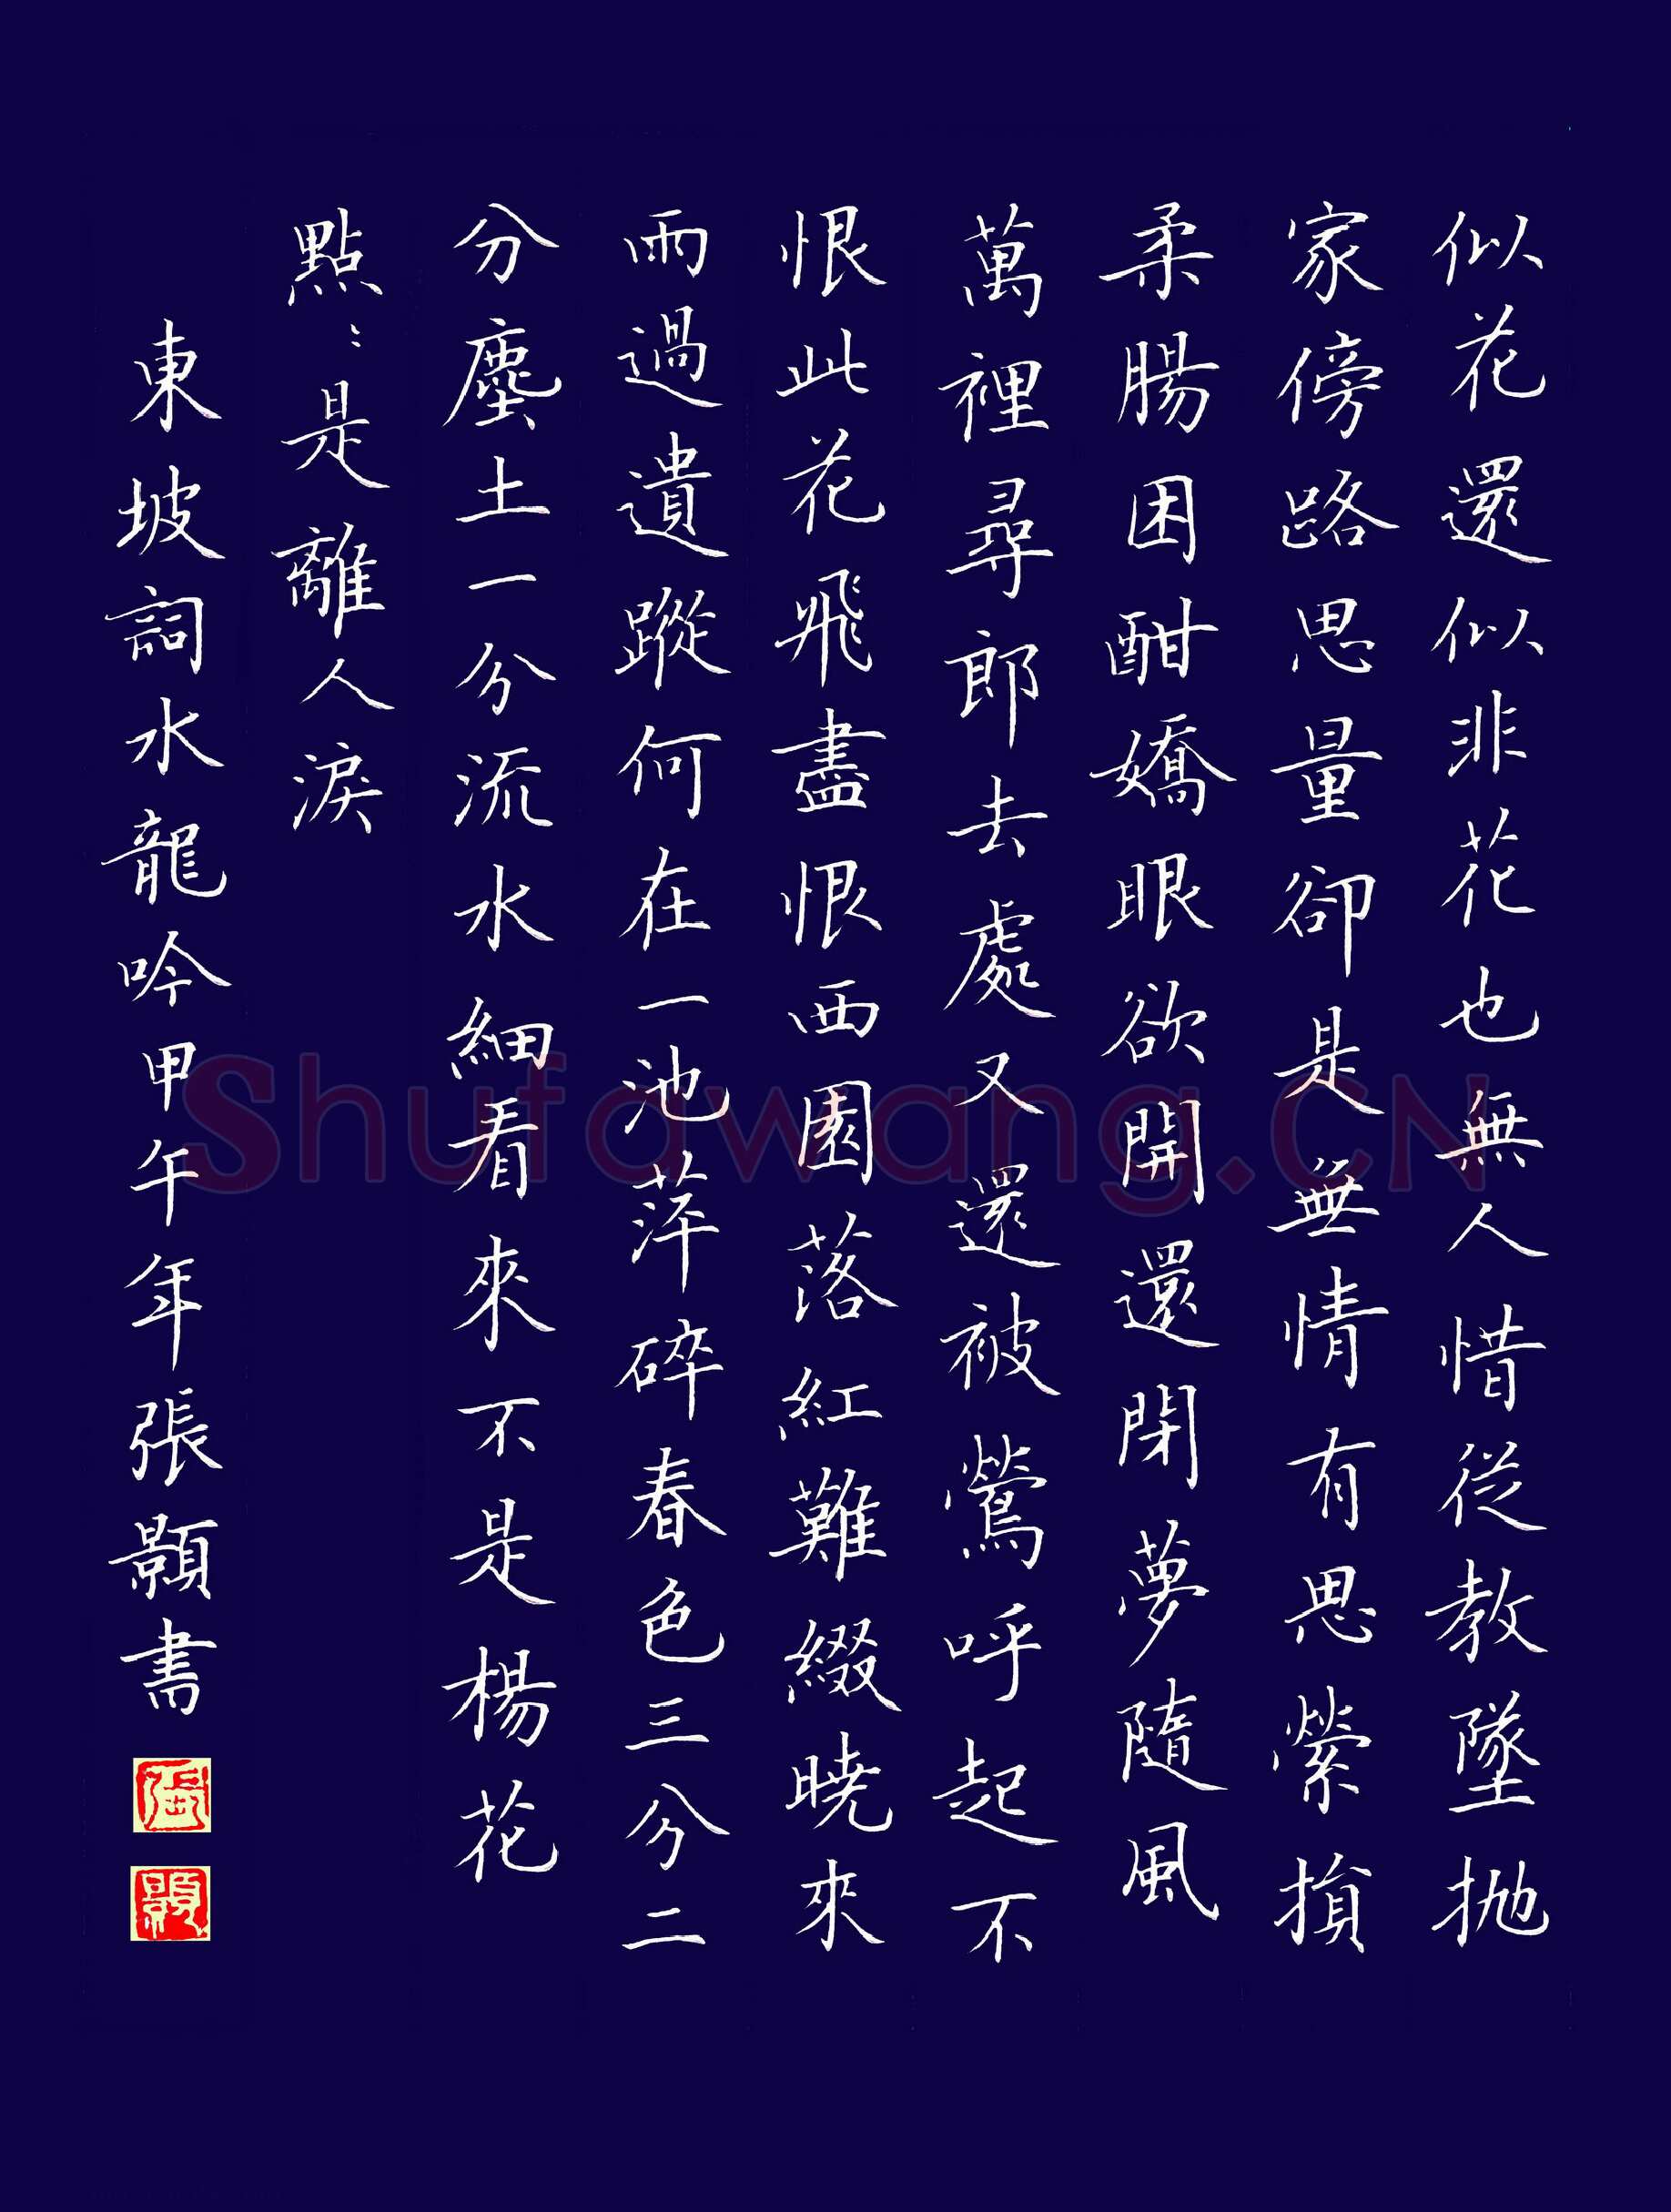 似花還似非花也無人惜從教墜拋
家傍路思量卻是無情有思縈損
柔腸困酣嬌眼欲開還閉夢隨風
萬裡尋郎去處又還被鶯呼起不
恨此花飛盡恨西園落紅難綴曉來
雨過遺蹤何在一池萍碎春色三分二
分塵土一分流水細看來不是楊花
點〻是離人淚
東坡詞水龍吟甲午年張顥書
張
顥
Shufawang.CN